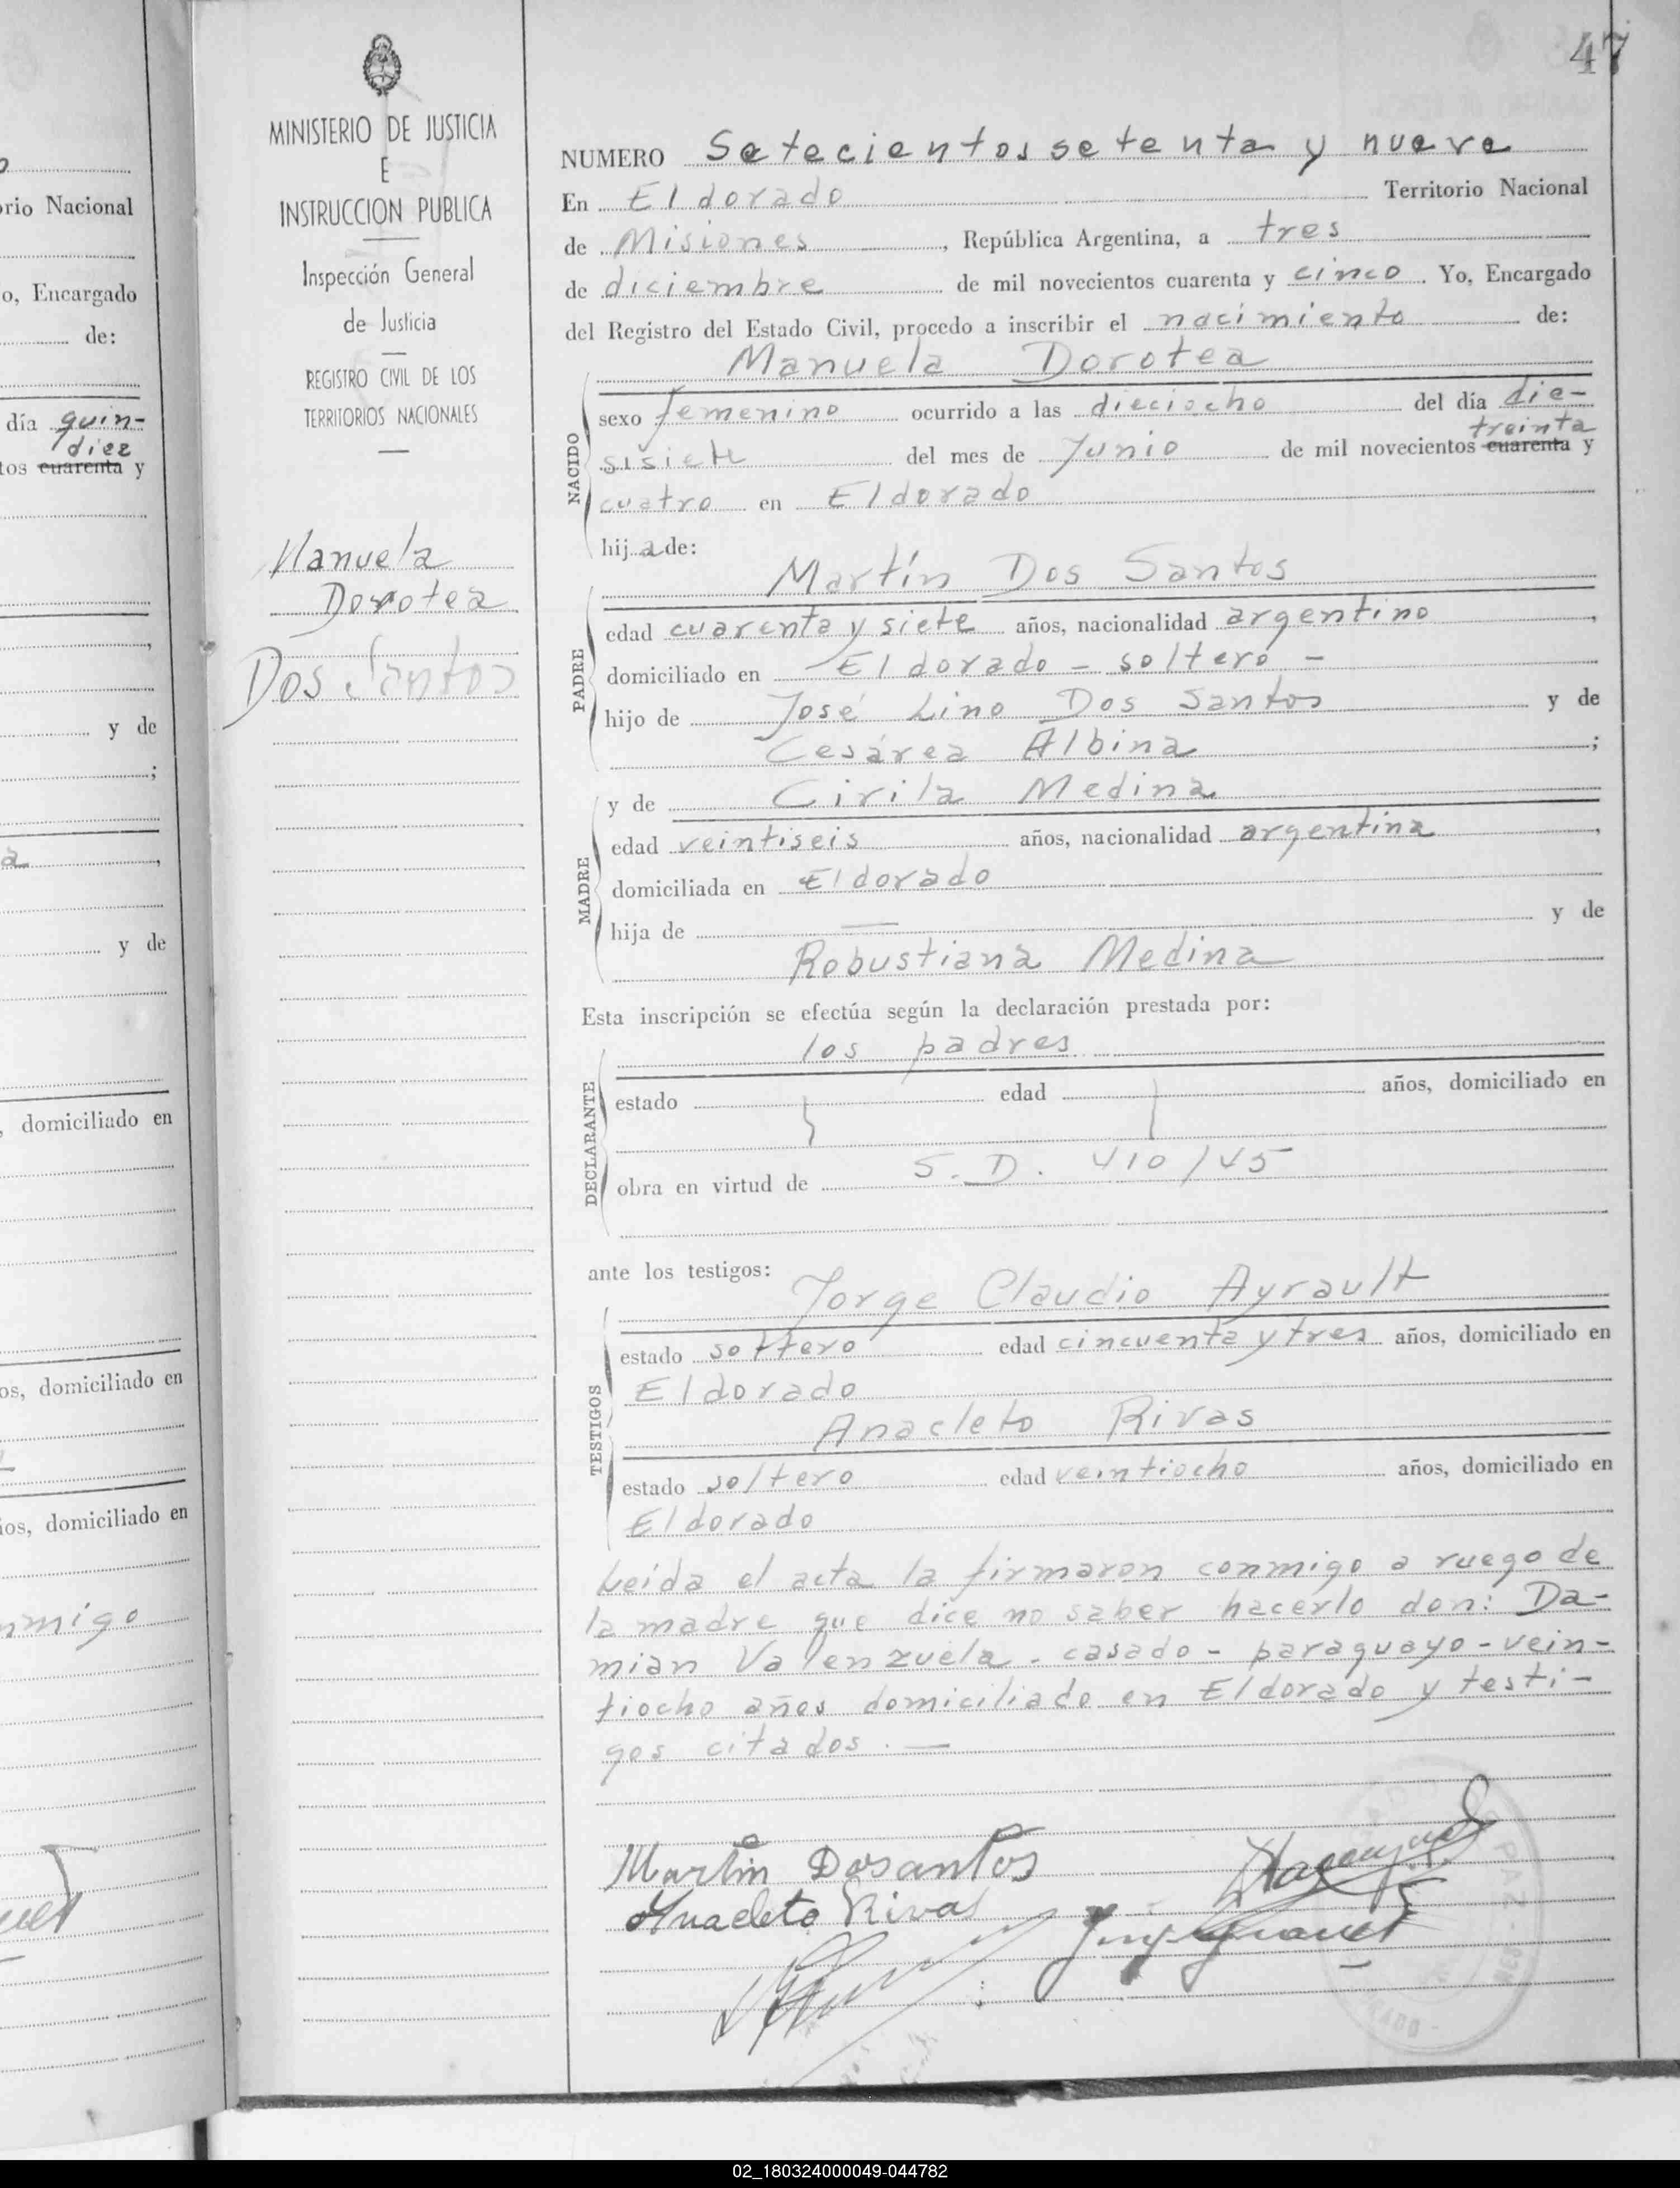 o
orio Nacional
o, Encargado
de:
día quin-
diez
tos cuarenta y
,
y de
;
a ,
y de
, domiciliado en
os, domiciliado en
ios, domiciliado en
nmigo
MINISTERIO DE JUSTICIA
E
INSTRUCCION PUBLICA
Inspección General
de Justicia
REGISTRO CIVIL DE LOS
TERRITORIOS NACIONALES
Manuela
Dorotea
Dos Santos
47
NUMERO Setecientos setenta y nueve
En Eldorado Territorio Nacional
de Misiones, República Argentina, a tres
de diciembre de mil novecientos cuarenta y cinco. Yo, Encargado
del Registro del Estado Civil, procedo a inscribir el nacimiento de:
Manuela Dorotea
NACIDO
sexo femenino ocurrido a las dieciocho del día die-
treinta
sisiete del mes de Junio de mil novecientos cuarenta y
cuatro en Eldorado
hija de:
Martín Dos Santos
PADRE
edad cuarenta y siete años, nacionalidad argentino,
domiciliado en Eldorado - soltero -
hijo de José Lino Dos Santos y de
Cesárea Albina;
MADRE
y de Cirila Medina
edad veintiseis años, nacionalidad argentina,
domiciliada en Eldorado
hija de — y de
Robustiana Medina
Esta inscripción se efectúa según la declaración prestada por:
los padres
DECLARANTE
estado edad años, domiciliado en
obra en virtud de S. D. 410/45
ante los testigos:
Jorge Claudio Ayrault
TESTIGOS
estado soltero edad cincuenta y tres años, domiciliado en
Eldorado
Anacleto Rivas
estado soltero edad veintiocho años, domiciliado en
Eldorado
Leida el acta la firmaron conmigo a ruego de
la madre que dice no saber hacerlo don: Da-
mian Valenzuela - casado - paraguayo - vein-
tiocho años domiciliado en Eldorado y testi-
gos citados. —
Martin Dosantos
Anacleto Rivas
02_180324000049-044782